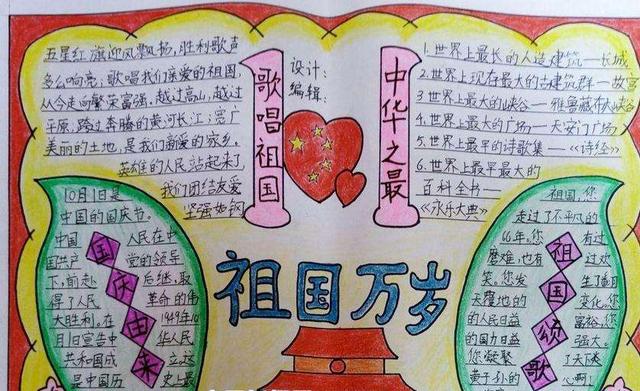 五星红旗迎风飘扬,胜利歌声
多么响亮;歌唱我们亲爱的祖国,
从今走向繁荣富强。越过高山,越过
平原,跨过奔腾的黄河长江;宽广
美丽的土地,是我们亲爱的家乡。
英雄的人民站起来了
我们团结友爱
坚强如钢
歌唱祖国
设计:
编辑:
中华之最
1.世界上最长的人造建筑——长城
2.世界上现存最大的古建筑群——故宫
3.世界上最大的峡谷——雅鲁藏布大峡谷
4.世界上最大的广场——天安门广场
5.世界上最早的诗歌集——《诗经》
6.世界上最早最大的
百科全书——
《永乐大典》
10月1日是
中国的国庆节。
中国 人民在中
国共产 党的领导
下,前赴 后继,取
得了人民 革命的伟
大胜利。在 1949年10
月1日宣告中 华人民
共和国成 立,这
是中国历 史上最
国庆由来
祖国万岁
祖国,您
走过了不平凡的
66年。您 有过
磨难,也有 过欢
笑。您发 生了翻
天覆地的 变化,您
的人民日益 富裕,您
的国力日益 强大。
您凝聚 了天下炎
黄子孙的 啊!
祖国颂歌